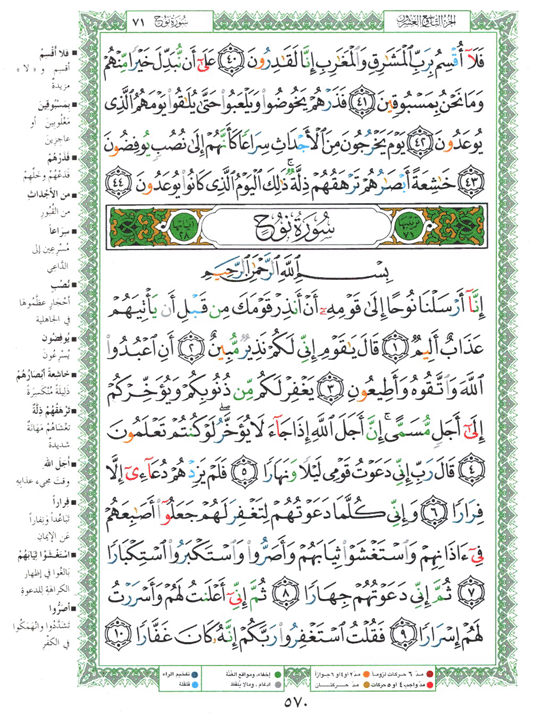 الجزء التاسع والعشرون
سُورَةُ نُوح ٧١
فَلَآ أُقْسِمُ بِرَبِّ ٱلْمَشَٰرِقِ وَٱلْمَغَٰرِبِ إِنَّا لَقَٰدِرُونَ ﴿٤٠﴾ عَلَىٰٓ أَن نُّبَدِّلَ خَيْرًا مِّنْهُمْ
وَمَا نَحْنُ بِمَسْبُوقِينَ ﴿٤١﴾ فَذَرْهُمْ يَخُوضُوا۟ وَيَلْعَبُوا۟ حَتَّىٰ يُلَٰقُوا۟ يَوْمَهُمُ ٱلَّذِى
يُوعَدُونَ ﴿٤٢﴾ يَوْمَ يَخْرُجُونَ مِنَ ٱلْأَجْدَاثِ سِرَاعًا كَأَنَّهُمْ إِلَىٰ نُصُبٍ يُوفِضُونَ
﴿٤٣﴾ خَٰشِعَةً أَبْصَٰرُهُمْ تَرْهَقُهُمْ ذِلَّةٌ ۚ ذَٰلِكَ ٱلْيَوْمُ ٱلَّذِى كَانُوا۟ يُوعَدُونَ ﴿٤٤﴾
ترتيبها ٧١ سُورَةُ نُوح آياتها ٢٨
بِسْمِ ٱللَّهِ ٱلرَّحْمَٰنِ ٱلرَّحِيمِ
إِنَّآ أَرْسَلْنَا نُوحًا إِلَىٰ قَوْمِهِۦٓ أَنْ أَنذِرْ قَوْمَكَ مِن قَبْلِ أَن يَأْتِيَهُمْ
عَذَابٌ أَلِيمٌ ﴿١﴾ قَالَ يَٰقَوْمِ إِنِّى لَكُمْ نَذِيرٌ مُّبِينٌ ﴿٢﴾ أَنِ ٱعْبُدُوا۟
ٱللَّهَ وَٱتَّقُوهُ وَأَطِيعُونِ ﴿٣﴾ يَغْفِرْ لَكُم مِّن ذُنُوبِكُمْ وَيُؤَخِّرْكُمْ
إِلَىٰٓ أَجَلٍ مُّسَمًّى ۚ إِنَّ أَجَلَ ٱللَّهِ إِذَا جَآءَ لَا يُؤَخَّرُ ۖ لَوْ كُنتُمْ تَعْلَمُونَ
﴿٤﴾ قَالَ رَبِّ إِنِّى دَعَوْتُ قَوْمِى لَيْلًا وَنَهَارًا ﴿٥﴾ فَلَمْ يَزِدْهُمْ دُعَآءِىٓ إِلَّا
فِرَارًا ﴿٦﴾ وَإِنِّى كُلَّمَا دَعَوْتُهُمْ لِتَغْفِرَ لَهُمْ جَعَلُوٓا۟ أَصَٰبِعَهُمْ
فِىٓ ءَاذَانِهِمْ وَٱسْتَغْشَوْا۟ ثِيَابَهُمْ وَأَصَرُّوا۟ وَٱسْتَكْبَرُوا۟ ٱسْتِكْبَارًا
﴿٧﴾ ثُمَّ إِنِّى دَعَوْتُهُمْ جِهَارًا ﴿٨﴾ ثُمَّ إِنِّىٓ أَعْلَنتُ لَهُمْ وَأَسْرَرْتُ
لَهُمْ إِسْرَارًا ﴿٩﴾ فَقُلْتُ ٱسْتَغْفِرُوا۟ رَبَّكُمْ إِنَّهُۥ كَانَ غَفَّارًا ﴿١٠﴾
■ فَلَا أُقْسِمُ
أُقسِم و «لا»
مزيدة
■ بِمَسْبُوقِينَ
مَغْلُوبينَ أو
عاجزينَ
■ فَذَرْهُمْ
فَدَعْهُمْ وخَلِّهِمْ
■ مِنَ الْأَجْدَاثِ
من القُبُورِ
■ سِرَاعًا
مُسْرِعين إلى
الدَّاعي
■ نُصُبٍ
أَحْجَارٍ عَظَّمُوهَا
في الجاهلية
■ يُوفِضُونَ
يُسْرِعُونَ
■ خَاشِعَةً أَبْصَارُهُمْ
ذَلِيلَةً مُنْكَسِرَةً
■ تَرْهَقُهُمْ ذِلَّةٌ
تَغْشَاهُمْ مَهَانَةٌ
شديدةٌ
■ أَجَلَ اللهِ
وقتَ مجيء عذابِهِ
■ فِرَارًا
تباعُدًا ونِفَارًا
عَنِ الإيمانِ
■ اسْتَغْشَوْا ثِيَابَهُمْ
بالَغُوا في إظهارِ
الكراهةِ للدعوةِ
■ أَصَرُّوا
تَشَدَّدُوا وانْهَمَكُوا
في الكُفْرِ
مدّ ٦ حركات لزوماً مدّ ٢ او ٤ او ٦ جوازاً
مدّ واجب ٤ او ٥ حركات مدّ حركتان
إخفاء، ومواقع الغُنَّة
ادغام، وما لا يُلفظ
تفخيم الراء
قلقلة
٥٧٠